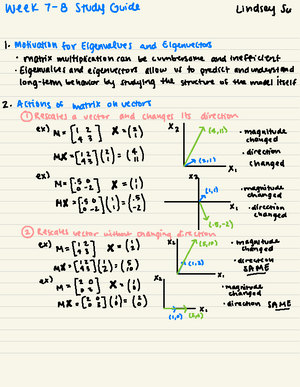 Week 7-8 Study Guide Lindsey Su
1. Motivation for Eigenvalues and Eigenvectors
• matrix multiplication can be cumbersome and inefficient
• Eigenvalues and eigenvectors allow us to predict and understand
long-term behavior by studying the structure of the model itself
2. Actions of matrix on vectors
① Rescales a vector and changes its direction
ex) M = [1 2; 4 3] X = (2 1)
MX = [1 2; 4 3] (2 1) = (4 11)
X₂ (4,11) (2,1) X₁
• magnitude
changed
• direction
changed
ex) M = [.5 0; 0 -2] X = (1 1)
MX = [.5 0; 0 -2] (1 1) = (.5 -2)
X₂ (1,1) X₁ (.5,-2)
• magnitude
changed
• direction
changed
② Rescales vector without changing direction
ex) M = [1 2; 4 3] X = (1 2)
MX = [1 2; 4 3] (1 2) = (5 10)
X₂ (5,10) (1,2) X₁
• magnitude
changed
• direction
SAME
ex) M = [2 0; 0 3] X = (1 0)
MX = (1 0) = (2 0)
X₂ (1,0) (2,0) X₁
• magnitude
changed
• direction SAME